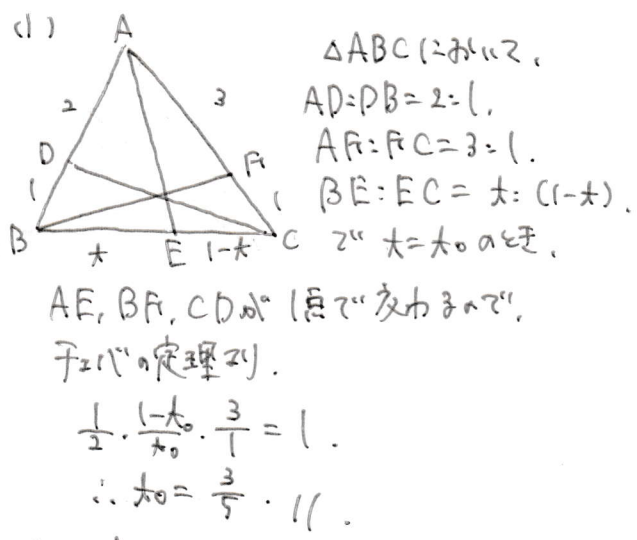 (1)
A
2
3
D
F
1
1
B
t
E
1-t
C
△ABCにおいて、
AD:DB=2:1.
AF:FC=3:1.
BE:EC=t:(1-t).
で t=t₀のとき、
AE, BF, CDが1点で交わるので、
チェバの定理より.
1/2・(1-t₀)/t₀・3/1=1.
∴ t₀=3/5. //.